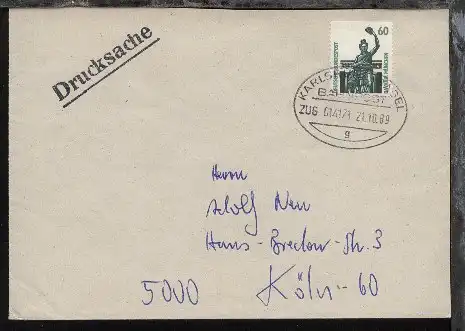 Drucksache
60
DEUTSCHE BUNDESPOST
KARLSRUHE - BASEL
BAHNPOST
ZUG 61421 21.10.89
g
Herrn
Adolf Neu
Hans-Bredow-Str. 3
5000 Köln-60